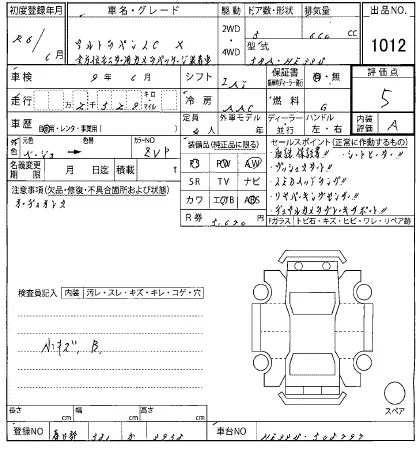 初度登録年月
R6/
6月
車名・グレード
アルトラパンLC X
全方位モニター用カメラパッケージ装着車
駆動
2WD
・
4WD
ドア数・形状
5
排気量
660
cc
型式
出品NO.
1012
車検
9年 6月
シフト
IAT
保証書
有・無
評価点
5
走行
万 2千529
キロ
マイル
冷房
AAC
燃料
G
車歴
自家用・レンタ・事業用( )
定員
4人
外車モデル
年
ディーラー
並行
ハンドル
左・右
内装
評価
A
外色
元色
ベージュ
→
色替
カラーNO
ZVP
名義変更
期限
月 日迄
積載
t
装備品(純正品に限る)
PS PW AW
SR TV ナビ
カワ エアB ABS
R券 5,690
セールスポイント(正常に作動するもの)
・取説、保証書!! ・シートヒーター!!
・プッシュスタート!!
・LEDヘッドランプ!!
・リヤパーキングセンサー!!
・デュアルカメラブレーキサポート!!
Fガラス トビ石・キズ・ヒビ・ワレ・リペア跡
注意事項(欠品・修復・不具合箇所および状態)
検査員記入
内装
汚レ・スレ・キズ・キレ・コゲ・穴
小キズ、B、
スペア
長さ
cm
幅
cm
高さ
cm
登録NO
春日部 581
車台NO
HE33S-